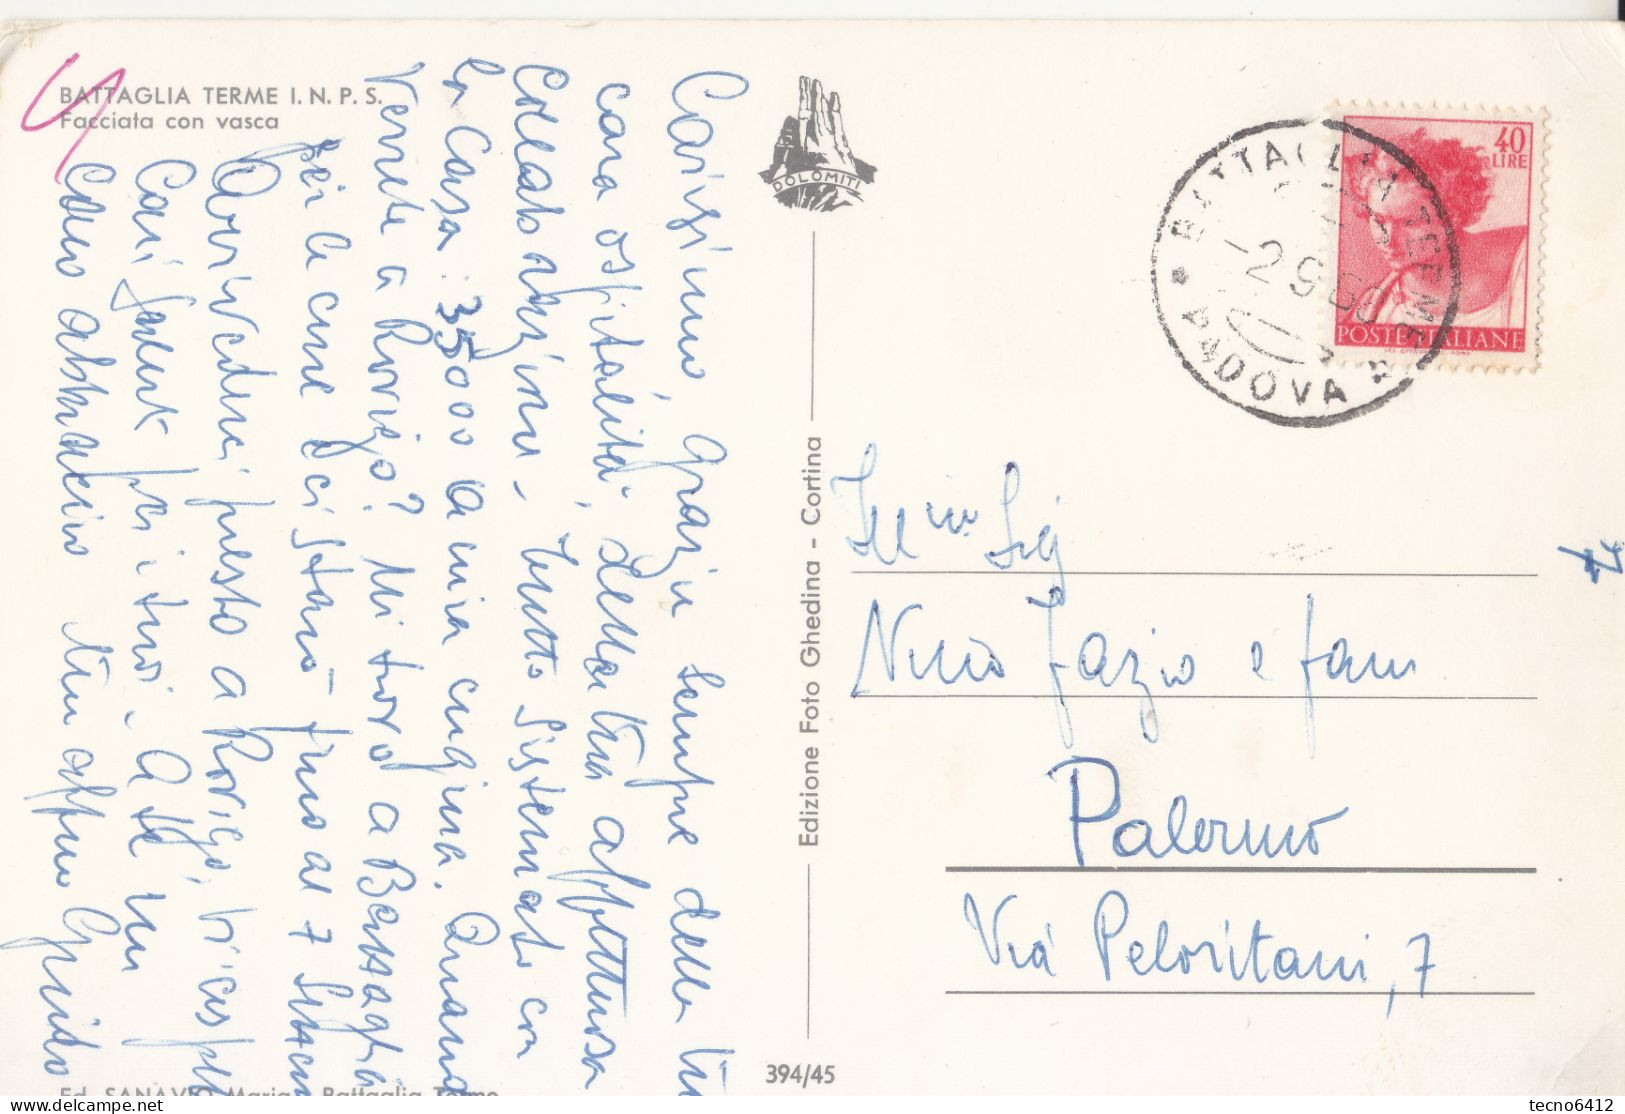 BATTAGLIA TERME I. N. P. S.
Facciata con vasca
Carissimo, grazie sempre della tua
cara ospitalità, della tua affettuosa
collaborazione. Tutto sistemato con
la casa: 35000 a mia cugina. Quando
verrete a Rovigo? Mi trovo a Battaglia
per le cure e ci starò fino al 7
Arrivederci presto a Rovigo,
Cari saluti per i tuoi. A te un
caro abbraccio tuo aff.mo Guido
Ed. SANAVIO Maria - Battaglia Terme
DOLOMITI
Edizione Foto Ghedina - Cortina
394/45
40
LIRE
POSTE ITALIANE
BATTAGLIA TERME
-2 9
PADOVA
Ill.mo Sig
Nino Fazio e fam
Palermo
Via Peloritani, 7
tecno6412